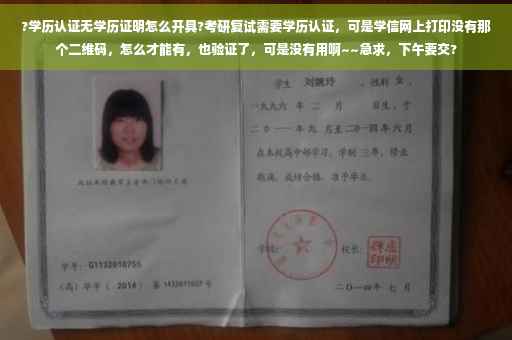 ?学历认证无学历证明怎么开具?考研复试需要学历认证，可是学信网上打印没有那
个二维码，怎么才能有，也验证了，可是没有用啊~~急求，下午要交?
学生 刘婉玲 ，性别 女 ，
一九九六 年 二 月 日生，于
二〇一一年九 月至二〇一四年 六 月
在本校高中部学习，学制 三年，修业
期满，成绩合格，准予毕业。
学号: G1132010755
(高)毕字 ( 2014 ) 第 1432011607 号
学校: 校长:
二〇一四年 七 月